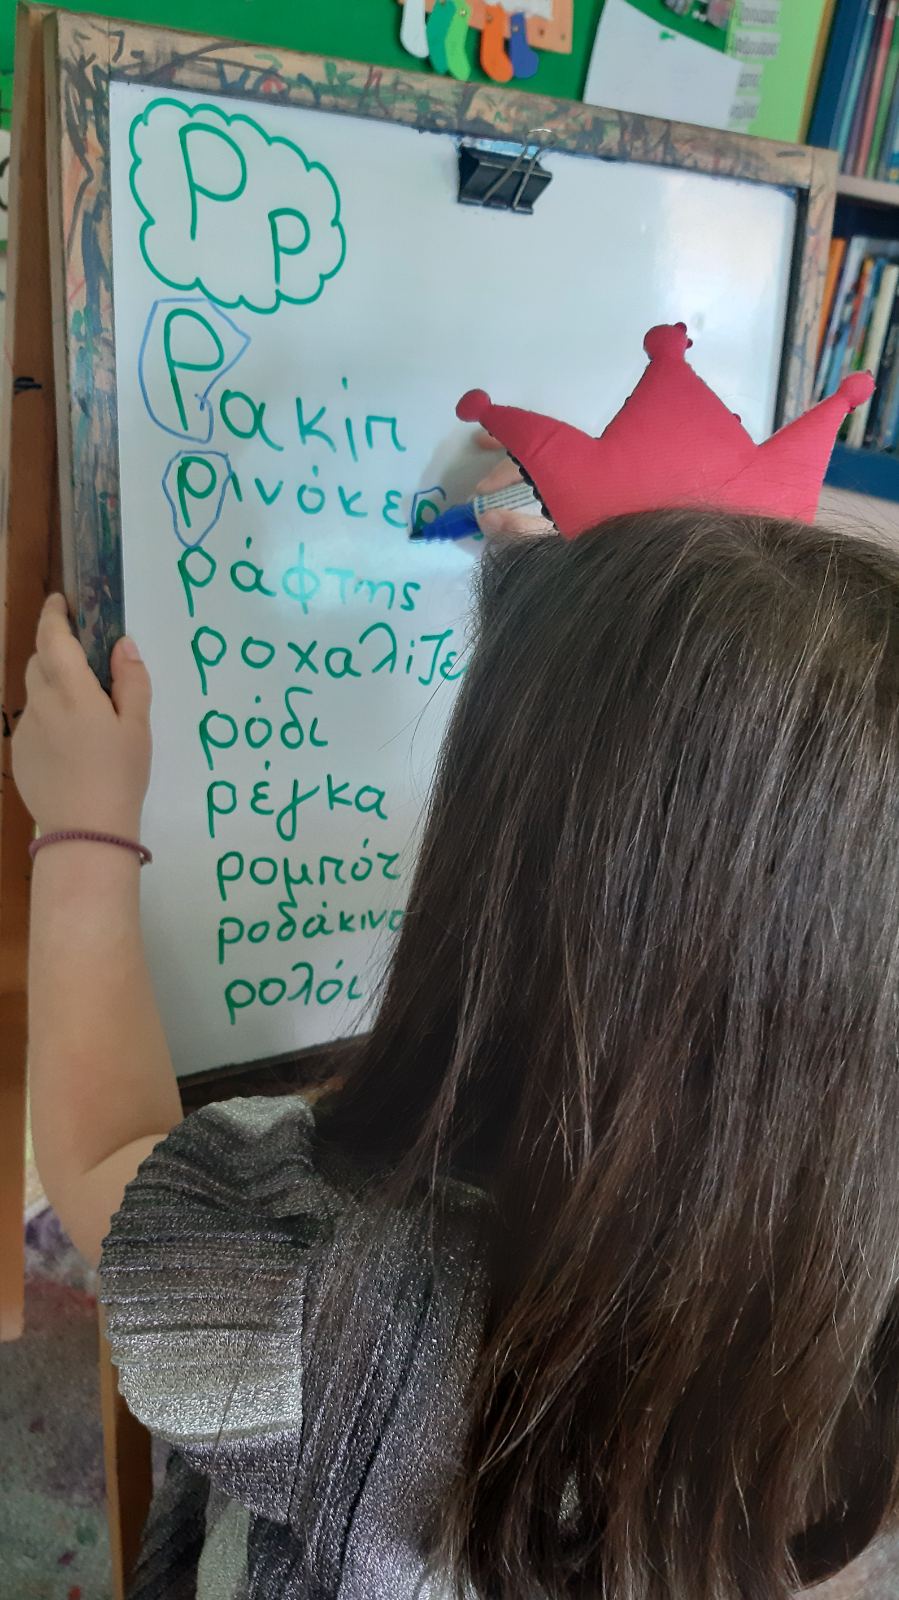 Ρ ρ
Ρακίπ
ρινόκερ
ράφτης
ροχαλίζε
ρόδι
ρέγκα
ρομπότ
ροδάκινο
ρολόι